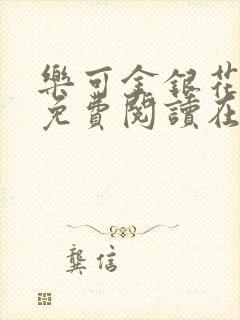 樂可金銀花
免費閱讀在
龔信